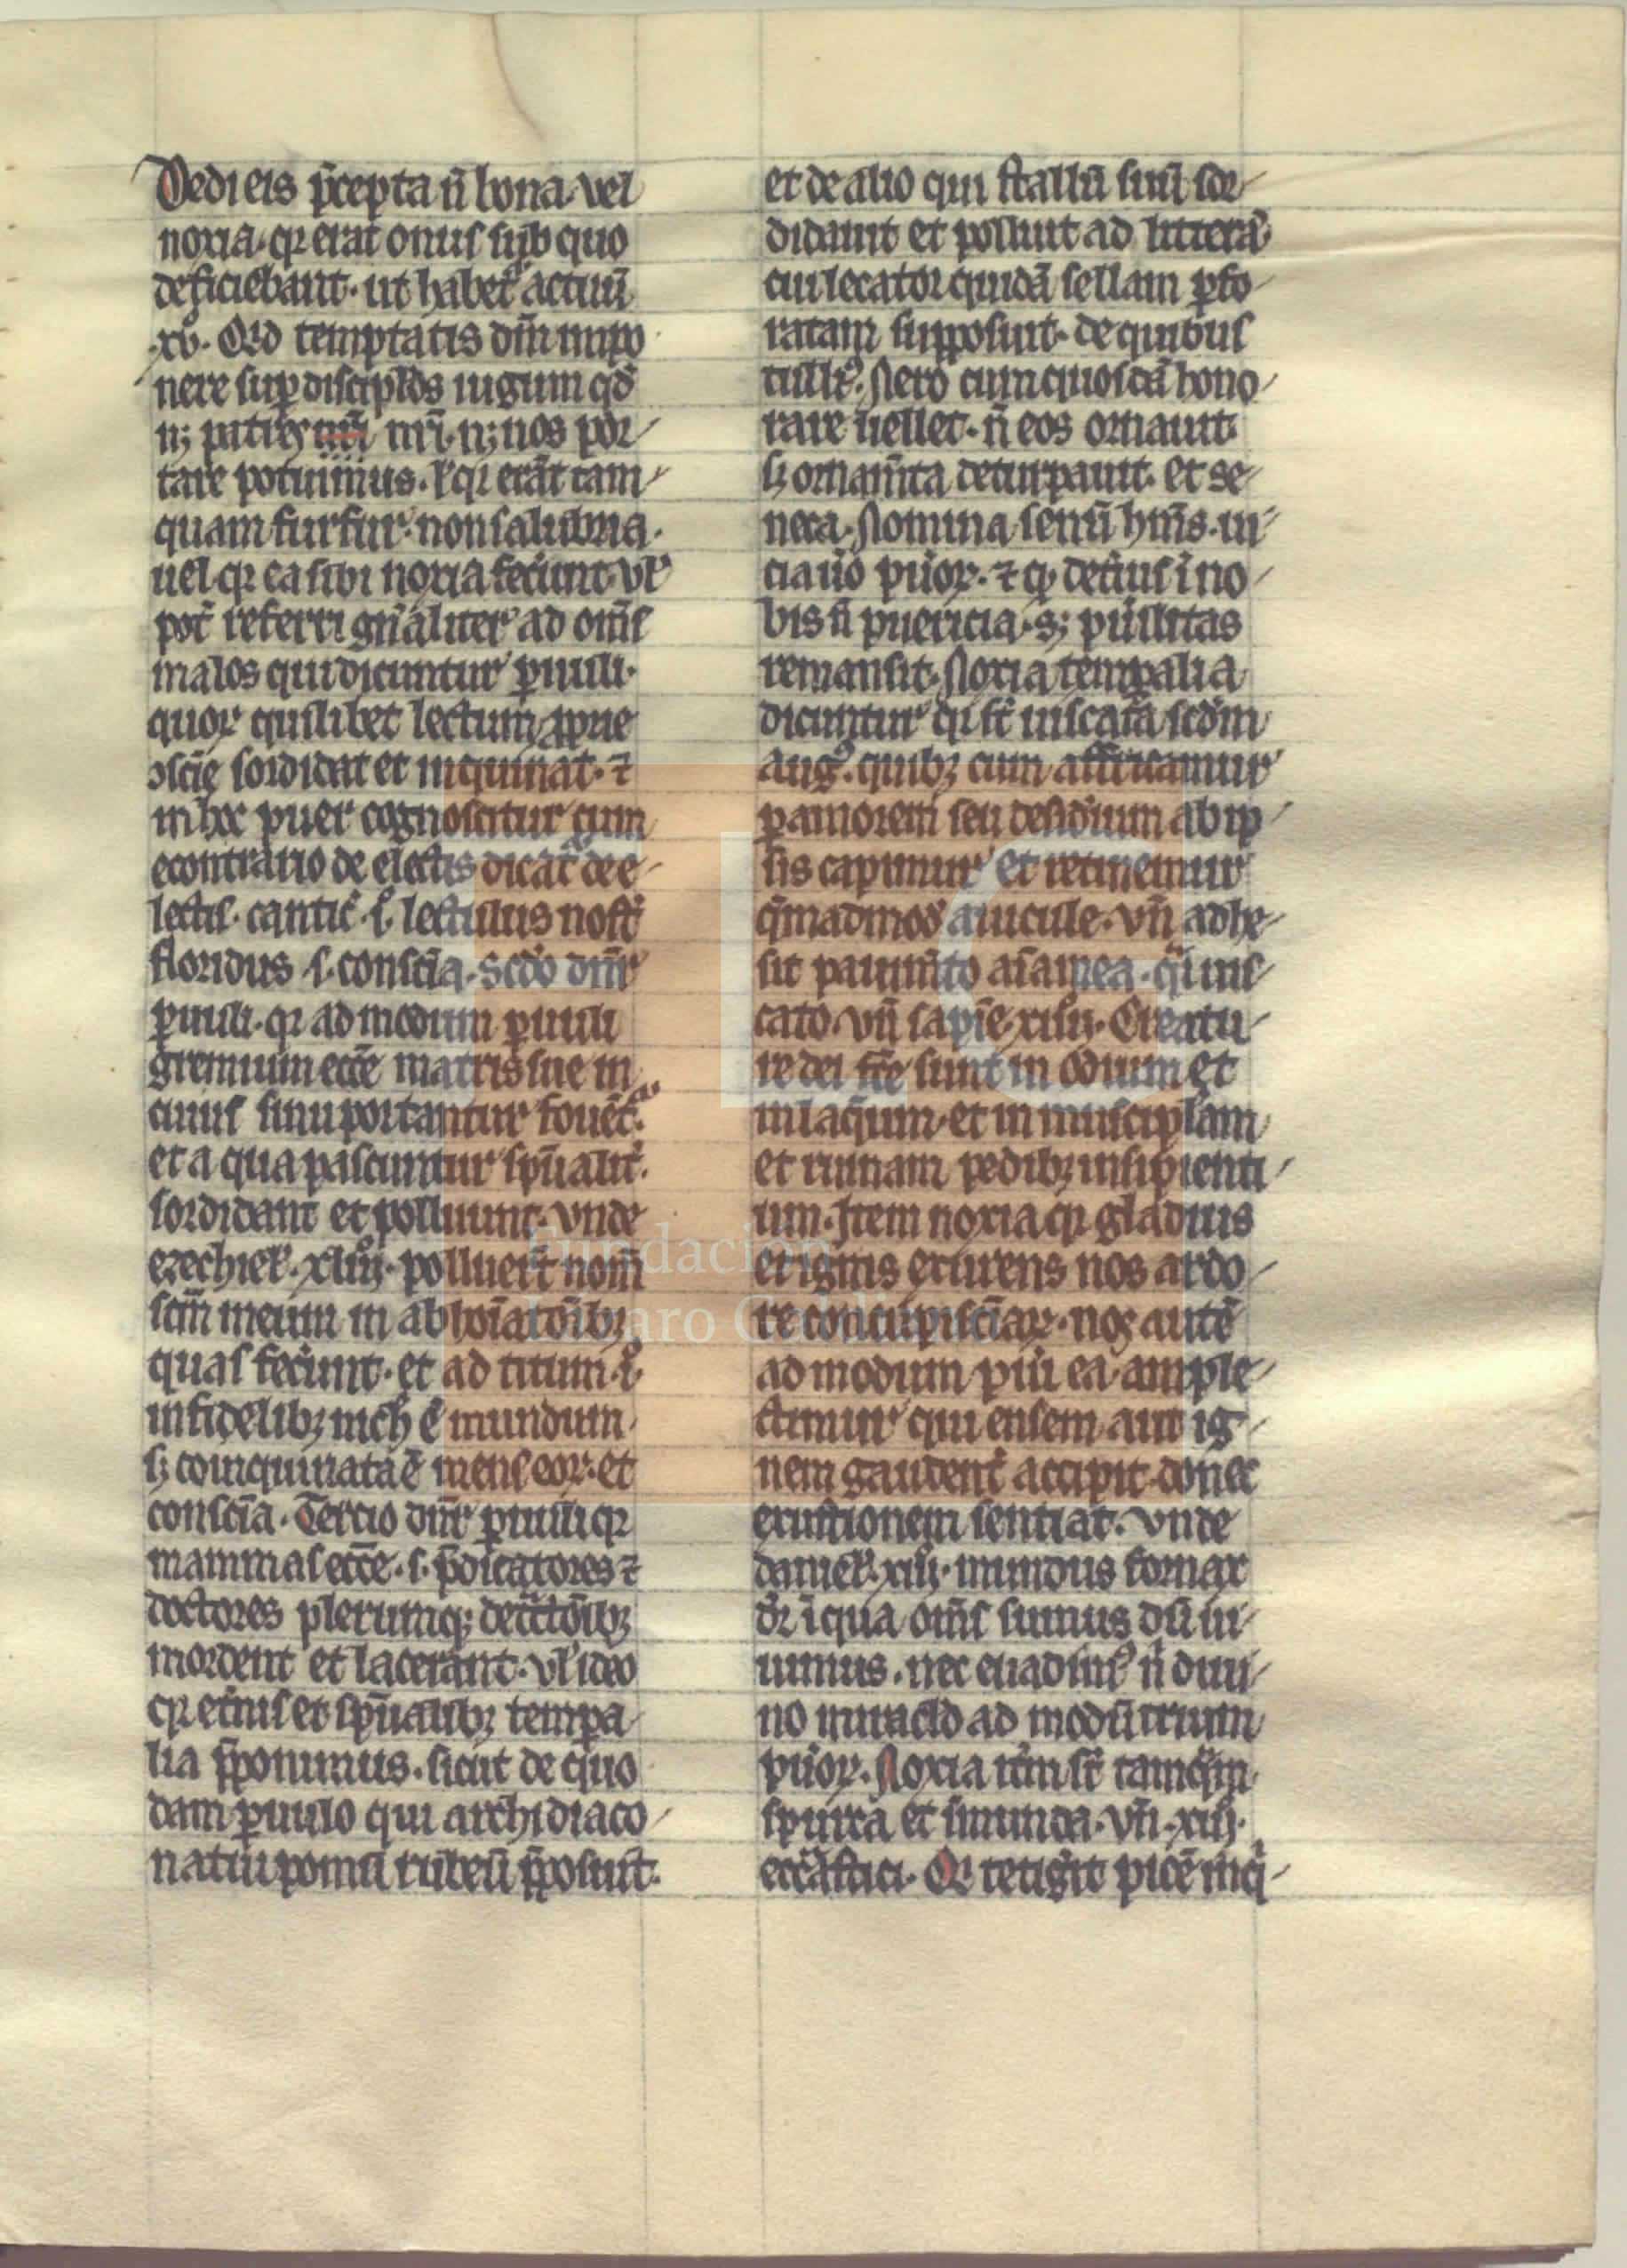 Dedi eis p̄cepta ñ bona. vel
noxia. qꝛ erat onus sub quo
deficiebant. ut habet᷑ actuū
.xv. Qͥd temptatis dm̄ impo
nere suꝑ discipĺos iugum qd̄
nꝫ patres nr̄i. nꝫ nos por
tare potuimus. ł qꝛ erāt tam
quam furfur. non salubria.
uel qꝛ ea sibi noxia fecerunt. vł
pot̄ referri gn̄aliter ad om̄s
malos qui dicuntur ꝑuuli.
quoꝝ quilibet lectum ꝓprie
ↄscīe sordidat et inquinat. ⁊
in hoc puer cognoscitur cum
econtrario de electis dicat᷑ de e
lectis. cantic̄. i. lectulus nost̄
floridus .s. consciā. Scd̄o dn̄r
ꝑuuli. qꝛ ad modum ꝑuuli
gremium ecc̄e matris sue in
cuius sinu portantur fouēt᷑
et a qua pascuntur sp̄ualit̄.
sordidant et polluunt. vnde
ezechieł. xliii. polluer̄t nom̄
sc̄m meum in abhoīatoībꝫ
quas fecerunt. et ad titum .i.
infidelibꝫ nich̄ ē mundum.
sꝫ coinquinata ē mens eoꝝ. et
consciā. Tercio dn̄r ꝑuuli qꝛ
mammas ecc̄e .s. p̄dicatores ⁊
doctores plerumqꝫ detͣctōībꝫ
mordent et lacerant. vł ideo
qꝛ et̄nis et sp̄ualibꝫ tempa
lia p̄ponimus. sicut de quo
dam ꝑuulo qui archidiaco
natui pomū rubeū p̄posuit.
et de alio qui stallū suū sor
didauit et polluit ad litterā
cui lecator quidā sellam ꝑfo
ratam supposuit. de quibus
tulliꝰ. Nero cum quosdā hono
rare uellet. ñ eos ornauit
sꝫ ornam̄ta deturpauit. et se
neca. Nomina senū hēms. ui
cia u̅o pu̅oꝝ. ⁊ qͥ detius ī no
bis ñ puericia. sꝫ pu̅ilitas
remansit. Noxia temꝑalia
dicuntur qꝛ st̄ uiscata scd̄m
augꝰ. quibꝫ cum afficimur
ꝑ amorem seu desideriium ab ip
sis capimur et retinemur
qͣmadmod̄ auicule. vn̄ adhe
sit pauim̄to aīa mea. qͣi uis
cato. vn̄ sapīe. xiiii. Creatu
re dei fc̄e sunt in odium et
in laqueum. et in muscipulam
et ruinam pedibꝫ insipienti
um. Item noxia qꝛ gladius
et ignis exurens nos ardo
re concupiscēciaꝝ. nos autē
ad modum pu̅i ea ample
ctimur qui ensem aut ig
nem gaudent̄ accipit donec
exustionem sentiat. vnde
danieł. xiii. mundus fornax
dr̄ ī qua om̄s sumus dū ui
uimus. nec euadimꝰ ñ diui
no miraclo ad modū trium
pu̅oꝝ. Noxia itm̄ st̄ tamqͣm
spurca et īmunda. vn̄. xiii.
ecc̄astici. Qi tetigit picē inqͥ